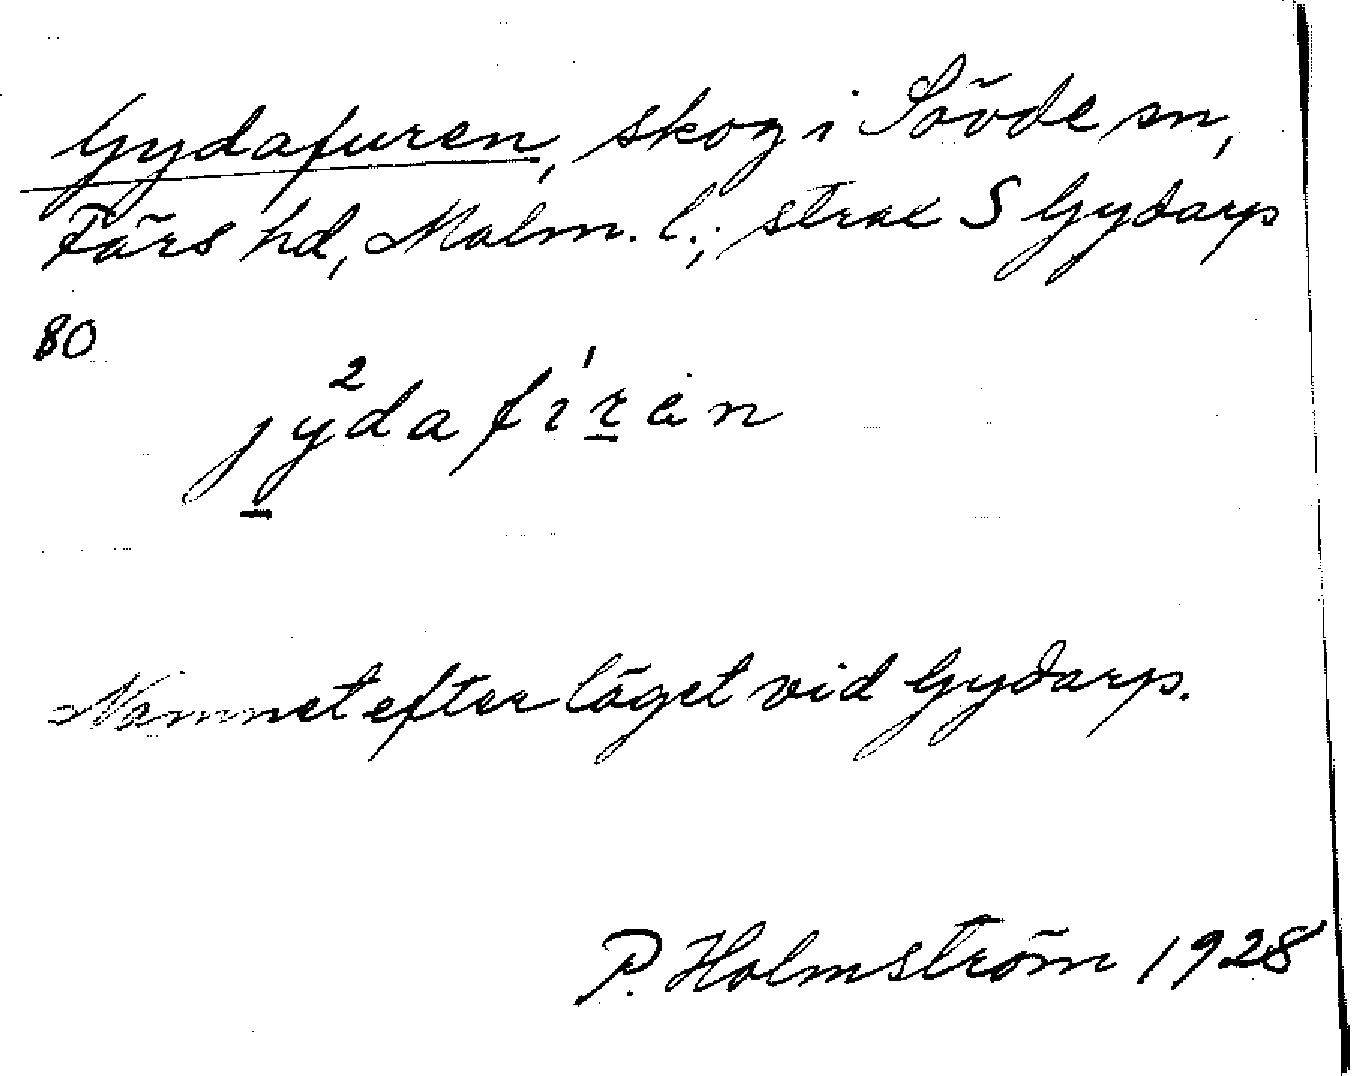 Gydafuren, skog i Sövde sn,
Färs hd, Malm. l.; strax S Gydarp
80
jy̱²dafíṟen
Namnet efter läget vid Gydarp.
P. Holmström 1928